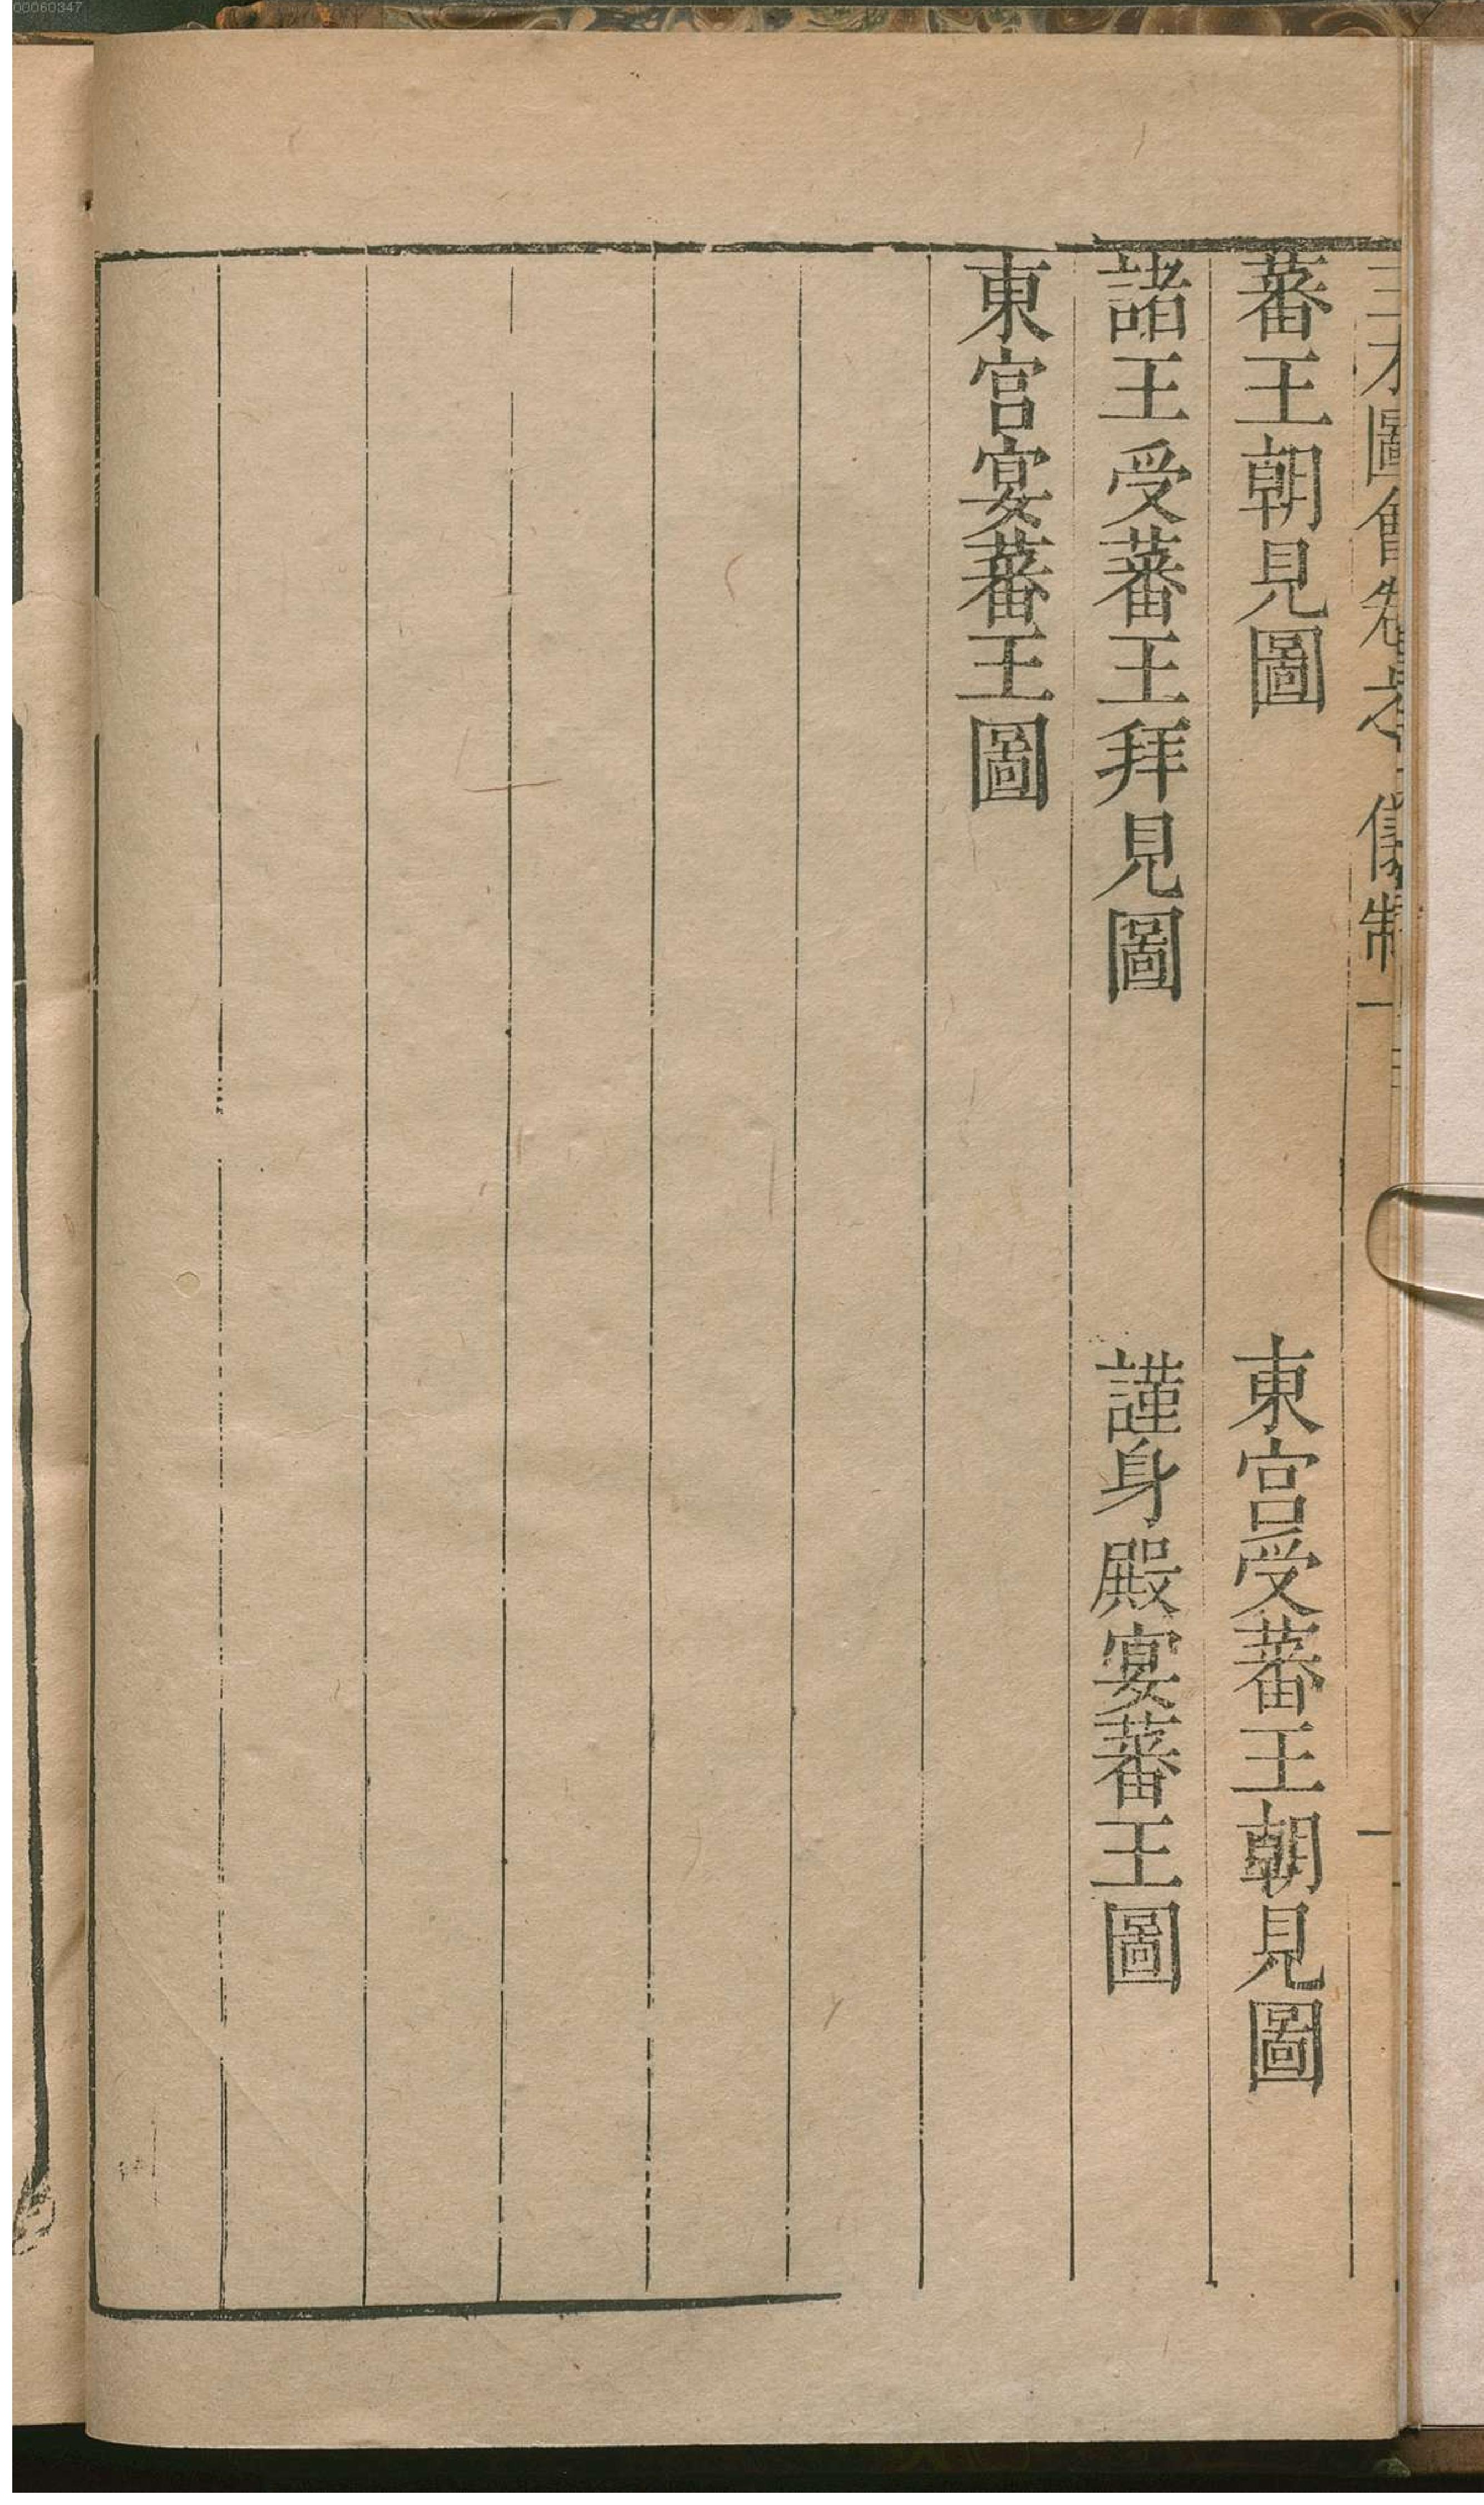 00060347
圖會卷之 儀制一
蕃王朝見圖 東宮受蕃王朝見圖
諸王受蕃王拜見圖 謹身殿宴蕃王圖
東宮宴蕃王圖